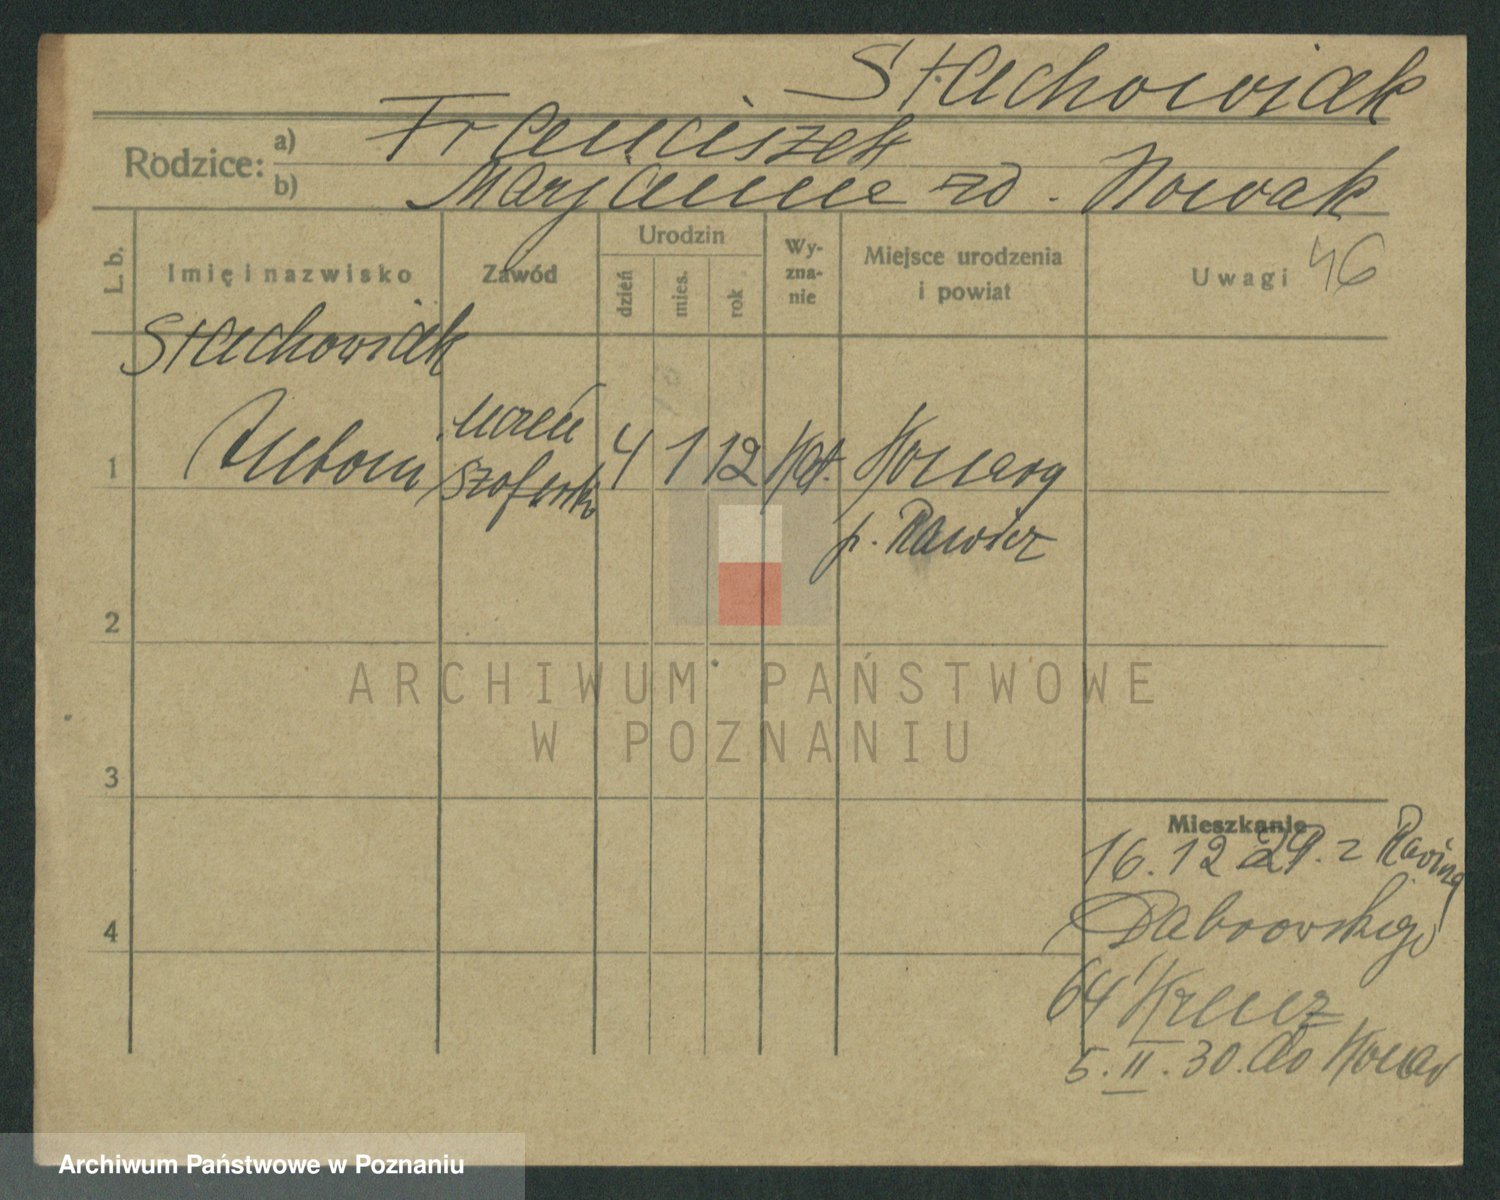 Stachowiak
Rodzice: a) Franciszek
b) Maryanna zd. Nowak
L. b. Imię i nazwisko Zawód Urodzin dzień mies. rok Wyznanie Miejsce urodzenia i powiat Uwagi 46
Stachowiak
1 Antoni uczeń szoferski 4 1 12 Kat. Konary
p. Rawicz
2
3
4
Mieszkanie
16.12 29. z
Dabrowskigo
64
5.II.30. do Konar
ARCHIWUM PAŃSTWOWE
W POZNANIU
Archiwum Państwowe w Poznaniu